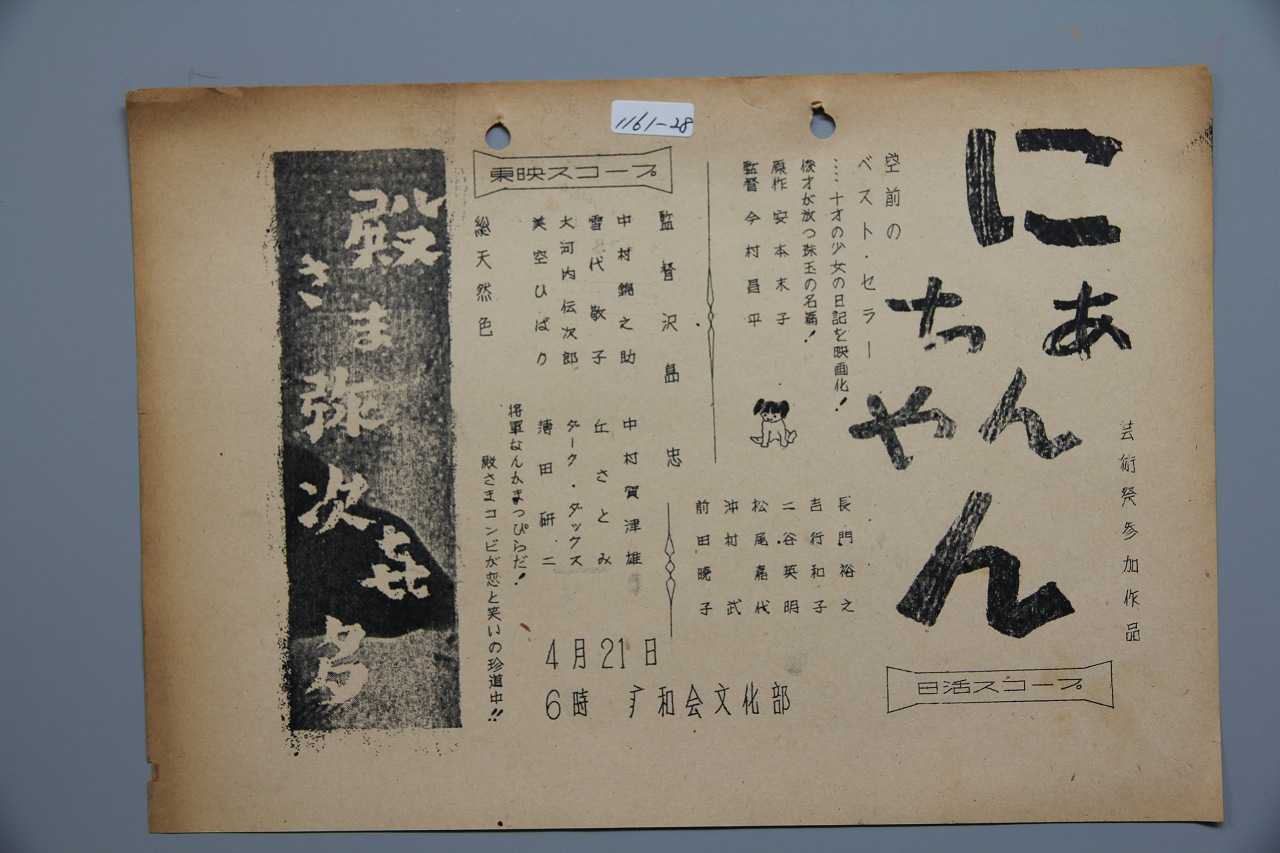 1161-28
芸術祭参加作品
にあんちゃん
日活スコープ
空前の
ベスト・セラー
……十才の少女の日記を映画化!
俊才が放つ珠玉の名篇!
原作 安本末子
監督 今村昌平
長門裕之
吉行和子
二谷英明
松尾嘉代
沖村武
前田暁子
東映スコープ
監督 沢島忠
中村錦之助 中村賀津雄
雪代敬子 丘さとみ
大河内伝次郎 ダーク・ダックス
美空ひばり 薄田研二
総天然色
将軍なんかまっぴらだ!
殿さまコンビが恋と笑いの珍道中!!
殿さま弥次㐂多
4月21日
6時 疒和会文化部